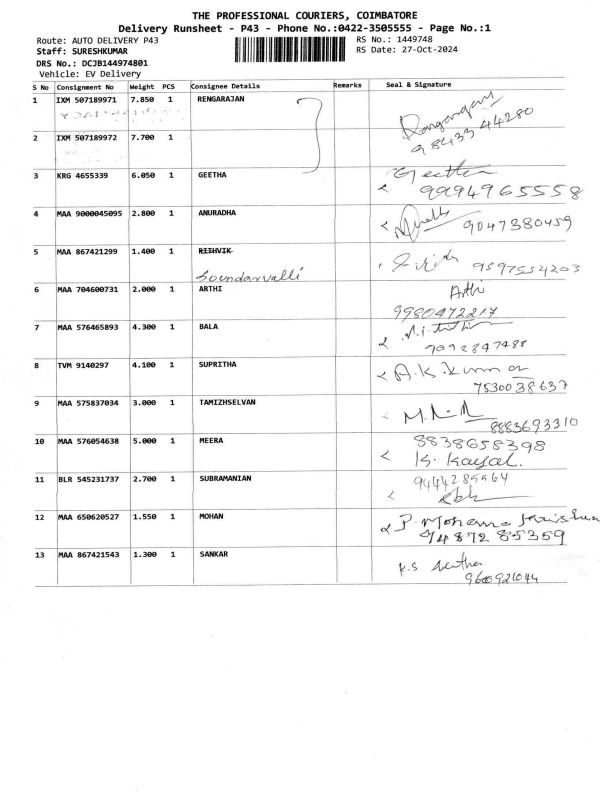 THE PROFESSIONAL COURIERS, COIMBATORE
Delivery Runsheet - P43 - Phone No.:0422-3505555 - Page No.:1
Route: AUTO DELIVERY P43 RS No.: 1449748
Staff: SURESHKUMAR RS Date: 27-Oct-2024
DRS No.: DCJB144974801
Vehicle: EV Delivery
S No Consignment No Weight PCS Consignee Details Remarks Seal & Signature
1 IXM 507189971 7.850 1 RENGARAJAN
Rangarajan
98433 44280
2 IXM 507189972 7.700 1
3 KRG 4655339 6.050 1 GEETHA Geetha
9994965558
4 MAA 9000045095 2.800 1 ANURADHA 9047380459
5 MAA 867421299 1.400 1 RITHVIK 9597554203
Soundarvalli
6 MAA 704600731 2.000 1 ARTHI Arthi
9980472217
7 MAA 576465893 4.300 1 BALA
9092847488
8 TVM 9140297 4.100 1 SUPRITHA A.K.Kumar
7530038637
9 MAA 575837034 3.000 1 TAMIZHSELVAN
8883693310
10 MAA 576054638 5.000 1 MEERA 8838658398
K. Kayal.
11 BLR 545231737 2.700 1 SUBRAMANIAN
12 MAA 650620527 1.550 1 MOHAN P. Mohana
94872 85359
13 MAA 867421543 1.300 1 SANKAR K.S
9600921044